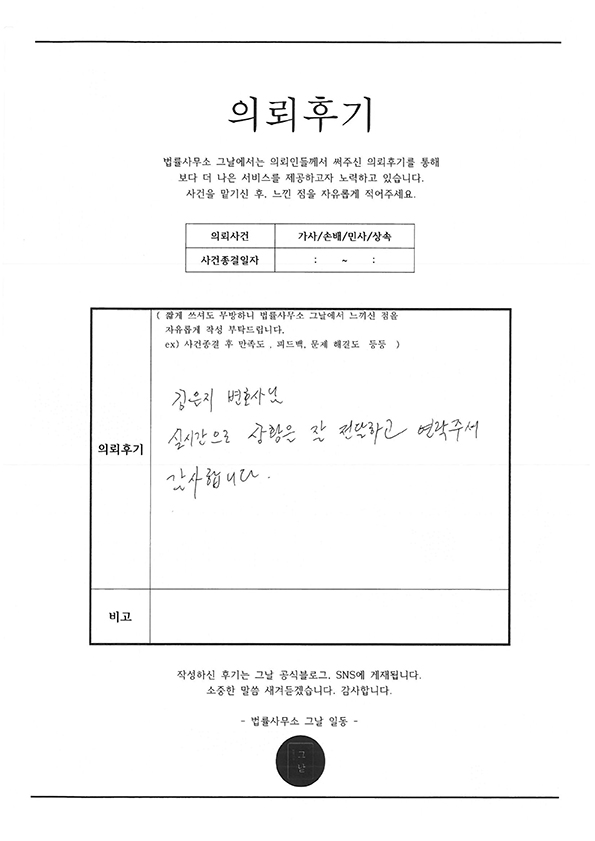 의뢰후기
법률사무소 그날에서는 의뢰인들께서 써주신 의뢰후기를 통해
보다 더 나은 서비스를 제공하고자 노력하고 있습니다.
사건을 맡기신 후, 느낀 점을 자유롭게 적어주세요.
의뢰사건 가사/손배/민사/상속
사건종결일자 : ~ :
( 짧게 쓰셔도 무방하니 법률사무소 그날에서 느끼신 점을
자유롭게 작성 부탁드립니다.
ex) 사건종결 후 만족도 , 피드백, 문제 해결도 등등 )
의뢰후기
김은지 변호사님
실시간으로 상황은 잘 전달하고 연락주셔
감사합니다.
비고
작성하신 후기는 그날 공식블로그, SNS에 게재됩니다.
소중한 말씀 새겨듣겠습니다. 감사합니다.
- 법률사무소 그날 일동 -
그
날